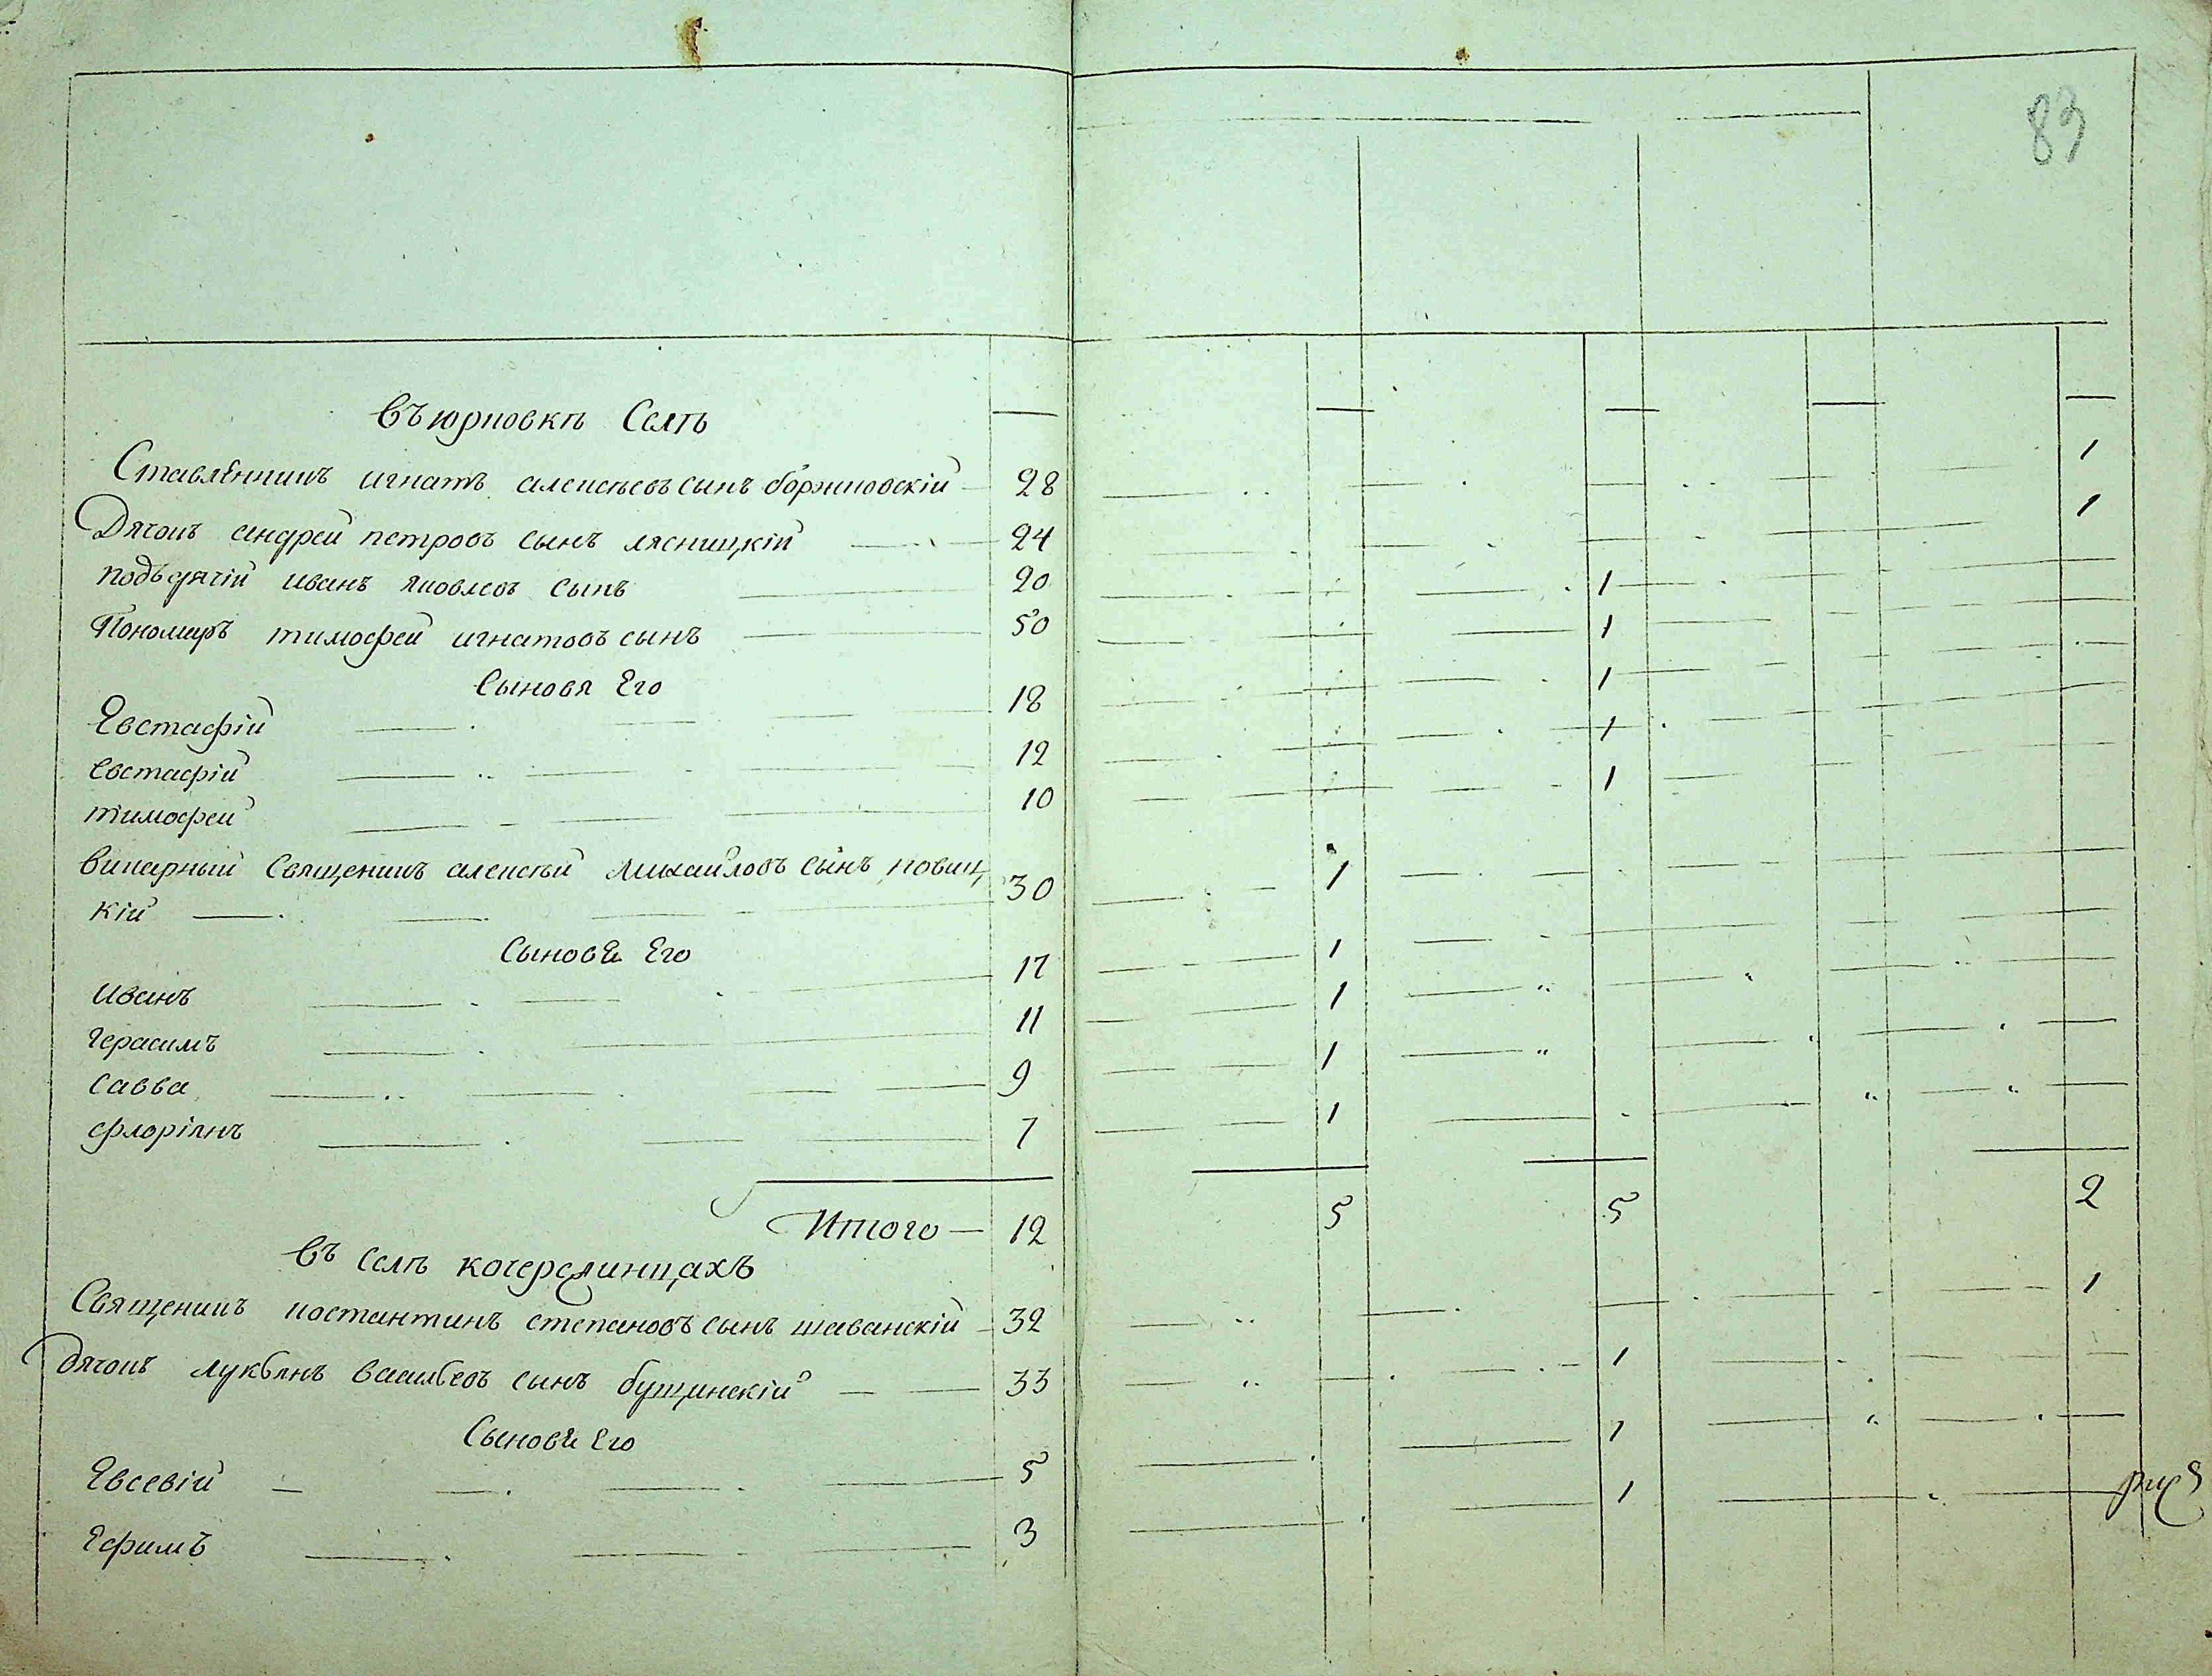 83
Въ юрповкѣ Селѣ
Ставлѣнникъ игнатъ алексѣевъ сынъ боржиковскій 28 1
Дячокъ андрей петровъ сынъ лясницкій 24 1
подъдячій иванъ яковлевъ сынъ 20 1
Пономаръ тимофей игнатовъ сынъ 50 1
Сыновя Его
Евстафій 18 1
Евстафій 12 1
тимофей 10 1
викарный Священикъ алексѣй михайловъ сынъ новиц
кій 30 1
Сыновѣ Его
иванъ 17 1
герасимъ 11 1
савва 9 1
флоріянъ 7 1
Итого 12 5 5 2
въ селѣ кочережинцахъ
Священикъ костантинъ степановъ сынъ шаванскій 32 1
дячокъ лукьянъ васильевъ сынъ бущинскій 33 1
Сыновѣ Его
Евсевій 5 1
Ефимъ 3 1